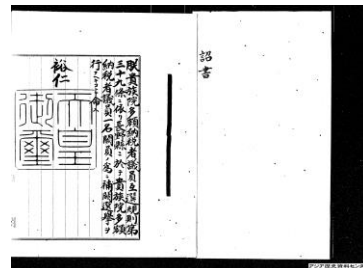 詔書
朕貴族院多額納税者議員互選規則第
三十九條ニ依リ長野縣ニ於テ貴族院多額
納税者議員一名闕員ノ爲ニ補闕選擧ヲ
行フヘキコトヲ命ス
裕仁
天皇
御璽
アジア歴史資料センター